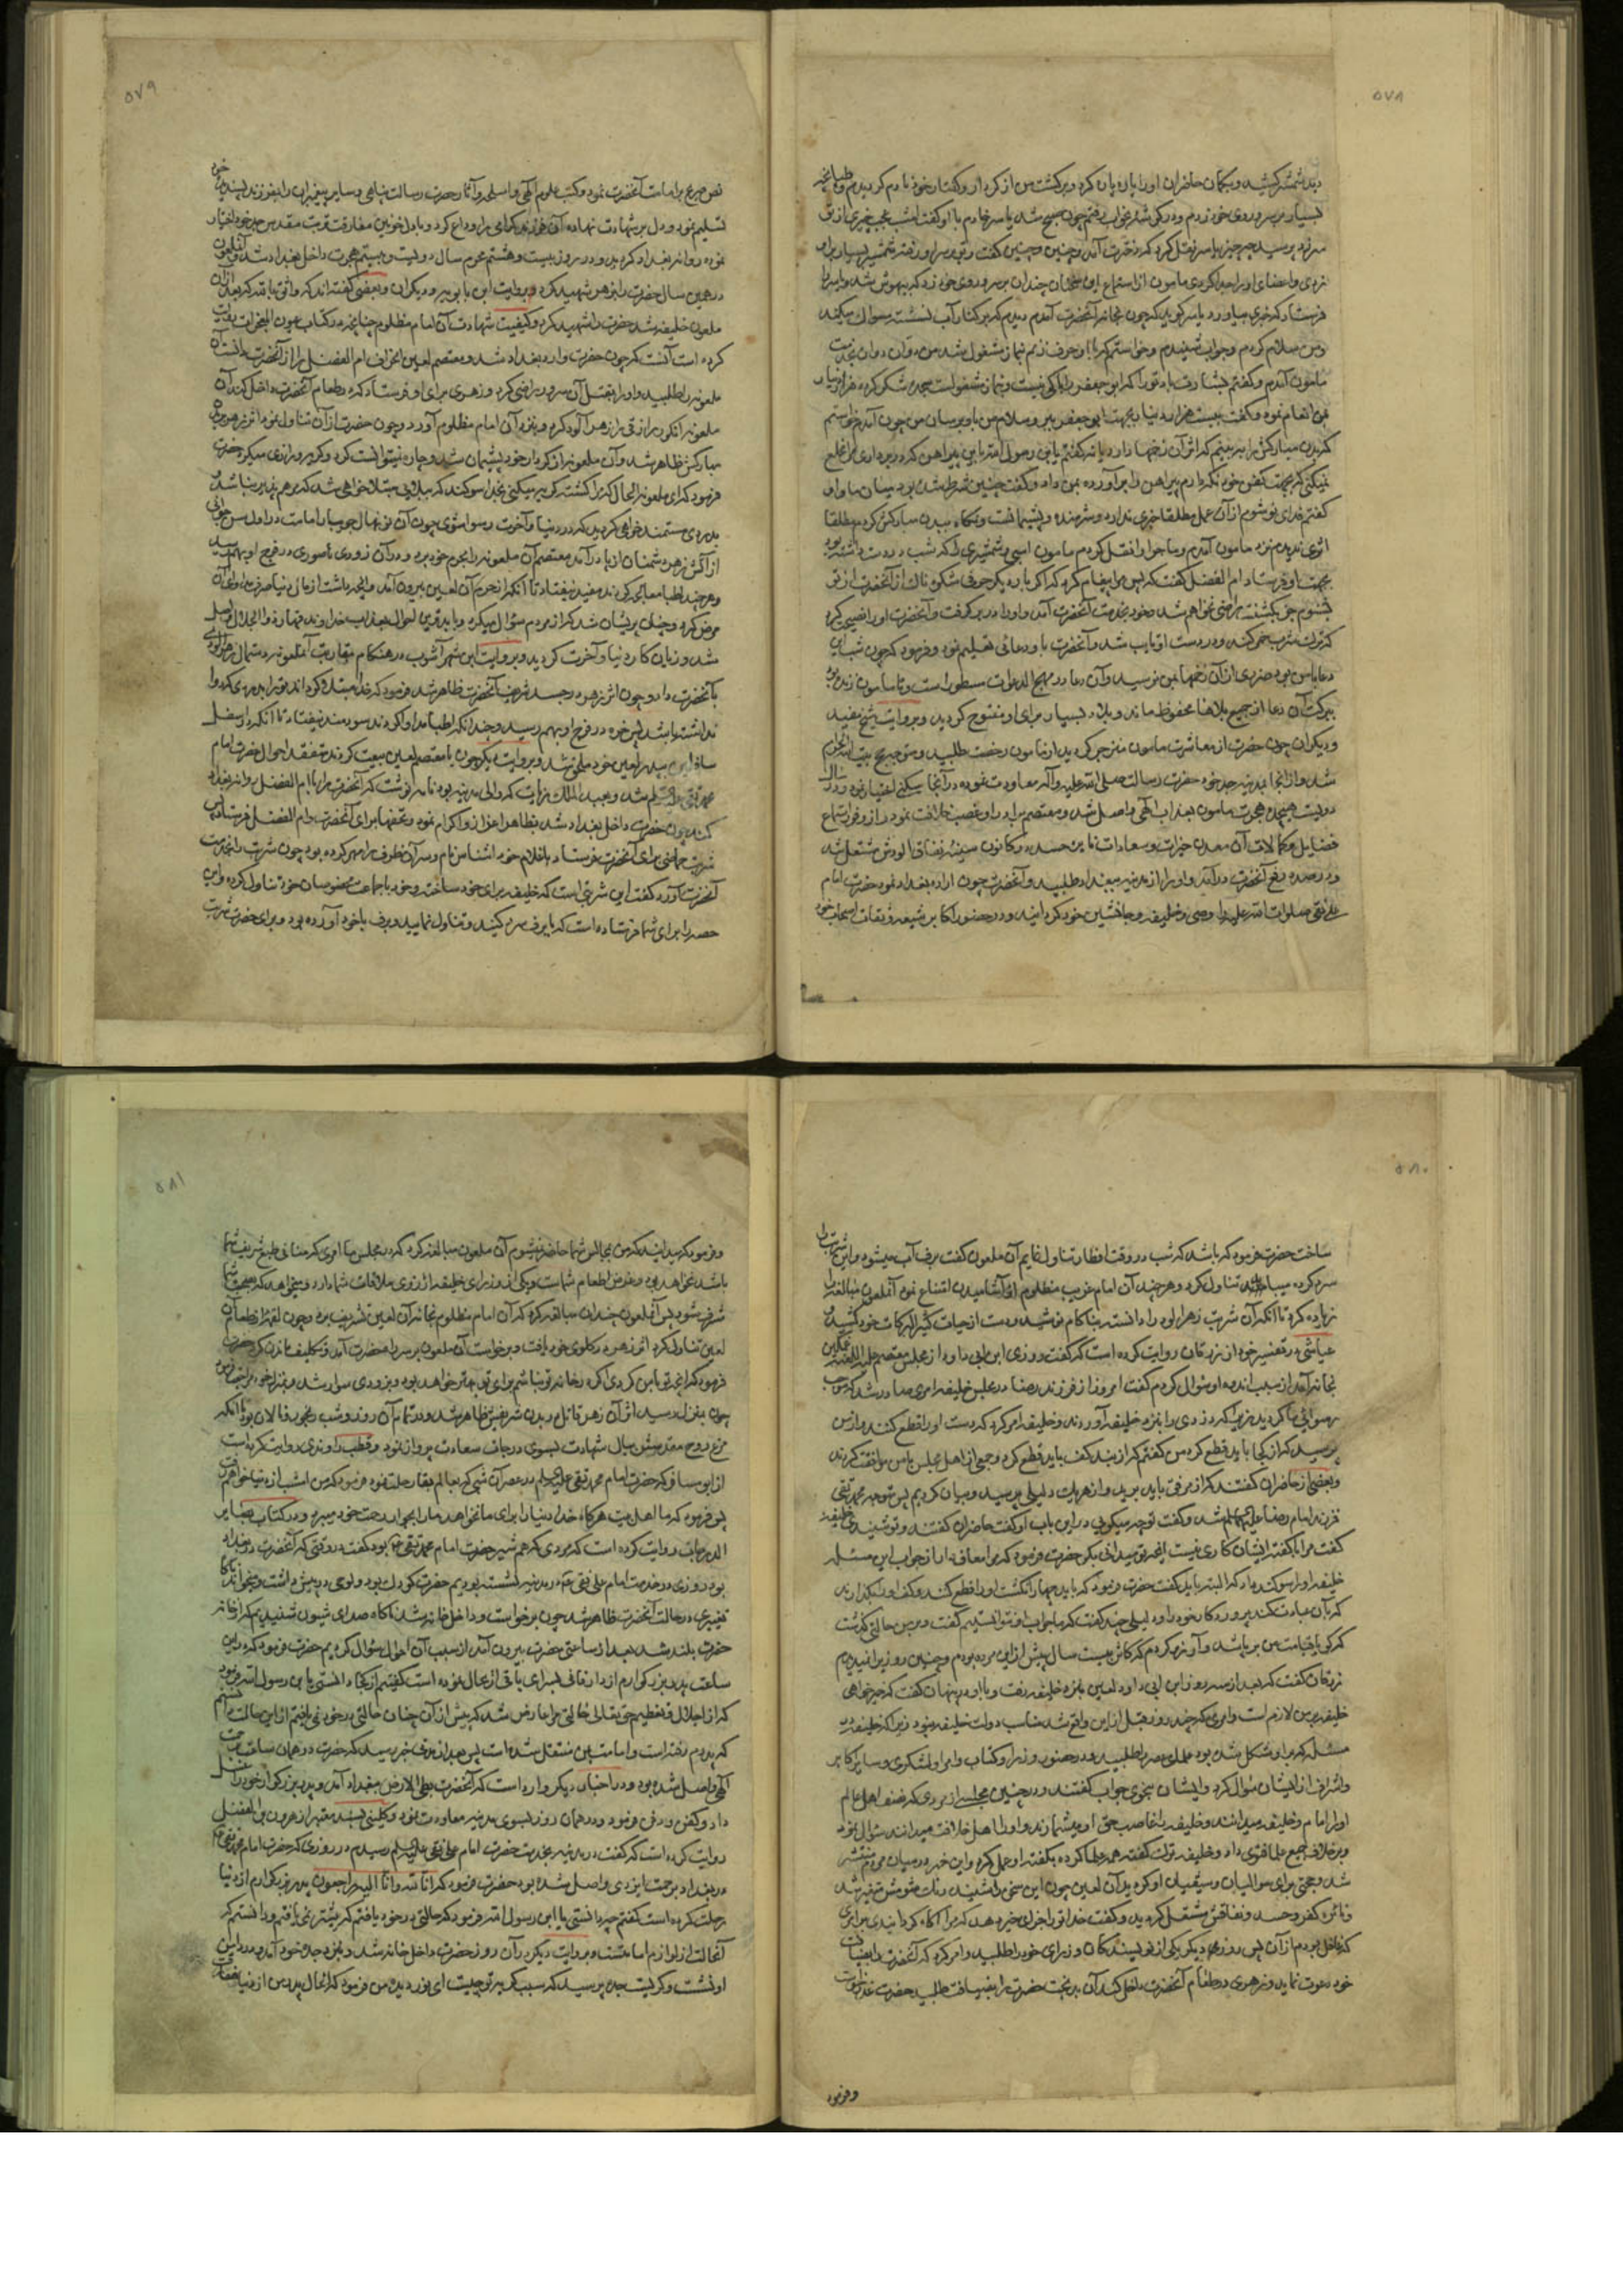 ۵۷۸
بسیار بر سر و روی خود زدم و در کوشه بخواب رفتم چون صبح شد یاسر خادم باو گفت امشب عجب چیزی از تو
سر زد پرسید چه چیز یاسر نقل کرد که دخترت آمد و چنین و چنین گفت و تو بر سر او رفته شمشیر بسیار بر او
زدی و اعضای او را جدا کردی مأمون از استماع این سخنان چندان بر سر و روی خود زد که بیهوش شد و یاسر را
فرستاد که خبری بیاورد یاسر گوید که چون بخانه آنحضرت آمدم دیدم که بر کنار آب نشسته مسواک میکند
من سلام کردم و جواب شنیدم و خواستم که با او حرف زنم بنماز مشغول شد من دوان دوان بخدمت
مأمون آمدم و گفتم بشارت باد تو را که ابو جعفر را باکی نیست و بنماز مشغول است سجده شکر کرده هزار دینار
بمن انعام نموده و گفت بیست هزار دینار بجهت ابو جعفر ببر و سلام من باو برسان من چون آمدم خواستم
که بدن مبارکش را ببینم که اثر آن زخمها دارد یا نه گفتم یا ابن رسول الله این پیراهن که در بر داری بمن خلع
نمیکنی که بجهت کفن خود نگه دارم پیراهن را برآورده بمن داد و گفت چنین شرط شده بود میان ما و او
گفتم فدای تو شوم از آن عمل مطلقا خبری ندارد و شرمنده و پشیمانست و نگاه ببدن مبارکش کردم مطلقا
اثری ندیدم نزد مأمون آمدم و ماجرا را نقل کردم مأمون اسبی و شمشیری را که شب در دست داشته بود
بجهت او فرستاد ام الفضل گفت که پس مرا پیغام کرد که اگر بار دیگر حرفی شکوه ناک از آنحضرت از تو
بشنوم جز بکشتنت راضی نخواهم شد و خود بخدمت آنحضرت آمد و او را در بر گرفت و آنحضرت او را نصیحت کرد
که ترک شرب خمر کند و در دست او تایب شد و آنحضرت باو دعائی تعلیم نمود و فرمود که چون شب این
دعا با من بود ضرری از آن زخمها بمن نرسید و آن دعا در مهج الدعوات مسطور است و تا مأمون زنده بود
ببرکت آن دعا از جمیع بلاها محفوظ ماند و بلاد بسیار برای او مفتوح گردید و بروایت شیخ مفید
و دیگران چون حضرت از معاشرت مأمون منزجر گردید از مأمون رخصت طلبید و متوجه حج بیت الله الحرام
شد و از آنجا بمدینه جد خود حضرت رسالت صلی الله علیه و آله معاودت نموده در آنجا سکنی اختیار نمود و در سال
دویست هیجدهم هجرت مأمون بعذاب الهی واصل شد و معتصم برادر او غصب خلافت نمود از وفور استماع
فضایل و کمالات آن معدن خیرات و سعادات نایره حسد در کانون سینه نفاق آلودش مشتعل شد
و در صدد دفع آنحضرت درآمد و او را از مدینه ببغداد طلبید و آنحضرت چون اراده بغداد نمود حضرت امام
علی نقی صلوات الله علیه را وصی و خلیفه و جانشین خود گردانید و در حضور اکابر شیعه و ثقات اصحاب خود
۵۷۹
نص صریح بر امامت آنحضرت نمود و کتب علوم الهی و اسلحه و آثار حضرت رسالت پناهی و سایر پیغمبران را بفرزند پسندیده خود
تسلیم نمود و دل بر شهادت نهاده آن فرزند گرامی را وداع کرد و با دل خونین مفارقت تربت مقدس جد خود اختیار
نموده روانه بغداد گردید و در روز بیست و هشتم محرم سال دویست و بیستم هجرت داخل بغداد شد و آنملعون
در همین سال حضرت را بزهر شهید کرد و بروایت ابن بابویه و دیگران و بعضی گفته اند که واثق بالله که بعد از آن
ملعون خلیفه شد حضرت را شهید کرد و کیفیت شهادت آن امام مظلوم چنانچه در کتاب عیون المعجزات روایت
کرده است آنست که چون حضرت وارد بغداد شد و معتصم لعین انحراف ام الفضل را از آنحضرت دانست آن
ملعونه را طلبید و او را بقتل آن سرور راضی کرد و زهری برای او فرستاد که در طعام آنحضرت داخل کند آن
ملعونه انگور رازقی را زهر آلود کرده و بنزد آن امام مظلوم آورد و چون حضرت از آن تناول نمود اثر زهر در بدن
مبارکش ظاهر شد و آن ملعونه از کردار خود پشیمان شد و چاره نمیتوانست کرد و گریه و زاری میکرد حضرت
فرمود که ای ملعونه الحال که مرا کشته گریه میکنی بخدا سوگند که ببلائی مبتلا خواهی شد که مرهم پذیر نباشد
بدردی مستمند خواهی گردید که در دنیا و آخرت رسوا شوی چون آن نونهال جویبار امامت در اول سن جوانی
از آتش زهر دشمنان از پا درآمد معتصم آن ملعونه را بحرم خود برد و در آن زودی ناصوری در فرج او بهم رسید
و هر چند اطبا معالجه کردند مفید نیفتاد تا آنکه از حرم آن لعین بیرون آمد و آنچه داشت از مال دنیا صرف مداوای آن
مرض کرد و چنان پریشان شد که از مردم سؤال میکرد و با بدترین احوال بعذاب خداوند قهار ذو الجلال واصل
شد و زیان کار دنیا و آخرت گردید و بروایت ابن شهر آشوب در هنگام مقاربت آنملعونه دستمال زهرآلوده
بآنحضرت داد و چون اثر زهر در جسد شریف آنحضرت ظاهر شد فرمود که خدا مبتلا گرداند ترا بدردی که دوا
نداشته باشد پس خوره در فرج او بهم رسید و چندانکه اطبا مداوا کردند سودمند نیفتاد تا آنکه باسفل
کند چون حضرت داخل بغداد شد بظاهر اعزاز و اکرام نمود و تحفها برای آنحضرت و ام الفضل فرستاد پس
شربت حماضی برای آنحضرت فرستاد با غلام خود اشناس نام و سر آن ظرف را مهر کرده بود چون شربت را بخدمت
آنحضرت آورد گفت این شربتی است که خلیفه برای خود ساخته و خود با جماعت مخصوصان خود تناول کرده و این
حصه را برای شما فرستاده است که با برف سرد کنید و تناول نمایید و برف با خود آورده بود و برای حضرت شربت
۵۸۰
ساخت حضرت فرمود که باشد که شب در وقت افطار تناول نمایم آن ملعون گفت برف آب میشود و این شربت را
سرد کرده میباید تناول کرد و هر چند آن امام غریب مظلوم از آشامیدن امتناع نمود آنملعون مبالغه را
زیاده کرد تا آنکه آن شربت زهرآلود را دانسته بناکام نوشید و دست از حیات کثیر البرکات خود کشید و
عیاشی در تفسیر خود از زرقان روایت کرده است که گفت روزی ابن ابی داود از مجلس معتصم علیه اللعنه غمگین
بخانه آمد از سبب اندوه او سؤال کردم گفت امروز از فرزند رضا در مجلس خلیفه امری صادر شد که موجب
رسوائی ما گردید زیرا که دزدی را بنزد خلیفه آوردند و خلیفه امر کرد که دست او را قطع کنند و از من
پرسید که از کجا باید قطع کرد من گفتم که از بند کف باید قطع کرد و جمعی از اهل مجلس با من موافقت کردند
و بعضی از حاضران گفتند که از مرفق باید برید و از هر یک دلیلی پرسید و بیان کردیم پس متوجه محمد تقی
فرزند امام رضا علیه السلم شد و گفت تو چه میگویی در این باب او گفت حاضران گفتند و تو شنیدی خلیفه
گفت مرا با گفته ایشان کاری نیست آنچه تو میدانی بگو حضرت فرمود که مرا معاف دار از جواب این مسئله
خلیفه او را سوگند داد که البته باید گفت حضرت فرمود که باید چهار انگشت او را قطع کنند و کف او را بگذارند
که بآن عبادت کند پروردگار خود را و دلیلی چند گفت که ما جواب او نتوانستیم گفت و بر من حالتی گذشت
که گویا قیامت من برپا شد و آرزو کردم که کاش بیست سال پیش از این مرده بودم و چنین روز را نمیدیدم
زرقان گفت که بعد از سه روز ابن ابی داود لعین بنزد خلیفه رفت و با او در پنهان گفت که خیرخواهی
خلیفه بر من لازم است و امری که چند روز قبل از این واقع شد مناسب دولت خلیفه نبود زیرا که خلیفه در
مسئله که بر او مشکل شده بود علمای عصر را طلبید و در حضور وزرا و کتاب و امرا و لشکری و سایر اکابر
و اشراف از ایشان سؤال کرد و ایشان بنحوی جواب گفتند و در چنین مجلسی از مردی که نصف اهل عالم
او را امام و خلیفه میدانند و خلیفه را غاصب حق او میشمارند و او را اهل خلافت میدانند سؤال نمود
و بر خلاف جمیع علما فتوی داد و خلیفه ترک گفته همه علما کرده بگفته او عمل کرد و این خبر در میان مردم منتشر
شد و حجتی برای موالیان و شیعیان او گردید آن لعین چون این سخن را شنید رنگ شومش متغیر شد
و نائره کفر و حسد و نفاقش مشتعل گردید و گفت خدا تو را جزای خیر دهد که مرا آگاه گردانیدی بر امری
که غافل بودم از آن پس روز دیگر یکی از نویسندگان وزرای خود را طلبید و امر کرد که آنحضرت را بضیافت
خود دعوت نماید و زهری در طعام آنحضرت داخل کند آن بدبخت حضرت را بضیافت طلبید حضرت عذر خواست
و فرمود
۵۸۱
و فرمود که میدانید که من بمجالس شما حاضر نمیشوم آن ملعون مبالغه کرد که در مجلس ما امری که منافی طبع شریف شما
باشد نخواهد بود و غرض اطعام شماست و یکی از وزرای خلیفه آرزوی ملاقات شما دارد و میخواهد که بصحبت شما
مشرف شود پس آنملعون چندان مبالغه کرد که آن امام مظلوم بخانه آن لعین تشریف برد و چون لقمه از طعام آن
لعین تناول کرد اثر زهر در گلوی خود یافت و برخواست آن ملعون بر سر راه حضرت آمد و تکلیف ماندن کرد حضرت
فرمود که آنچه تو با من کردی اگر در خانه تو نباشم برای تو بهتر خواهد بود و بزودی سوار شد و بمنزل خود مراجعت کرد
چون بمنزل رسید اثر آن زهر قاتل در بدن شریفش ظاهر شد و در تمام آن روز و شب رنجور و نالان بود تا آنکه
مرغ روح مقدسش ببال شهادت بسوی درجات سعادت پرواز نمود و قطب راوندی روایت کرده است
از ابو مسافر که حضرت امام محمد تقی علیه السلم در عصر آن شبی که بعالم بقا رحلت نمود فرمود که من امشب از دنیا خواهم رفت
پس فرمود که ما اهل بیت هر گاه خدا دنیا را برای ما نخواهد ما را بجوار رحمت خود میبرد و در کتاب بصایر
الدرجات روایت کرده است که مردی که هم شیر حضرت امام محمد تقی بود گفت در وقتی که آنحضرت در بغداد
بود روزی در خدمت امام علی نقی در مدینه نشسته بودیم حضرت کودک بود و لوحی در پیش داشت و میخواند ناگاه
تغییری در حالت آنحضرت ظاهر شد چون برخواست و داخل خانه شد ناگاه صدای شیون شنیدیم که از خانه
حضرت بلند شد بعد از ساعتی حضرت بیرون آمد از سبب آن احوال سؤال کردیم حضرت فرمود که در این
ساعت پدر بزرگوارم از دار فانی بسرای باقی ارتحال نموده است گفتیم از کجا دانستی یا ابن رسول الله فرمود
که از اجلال و تعظیم حق تعالی حالتی مرا عارض شد که پیش از آن چنان حالتی در خود نمی یافتم از این حالت دانستم
که پدرم رفته است و امامت بمن منتقل شده است پس بعد از مدتی خبر رسید که حضرت در همان ساعت برحمت
الهی واصل شده بود و در احادیث دیگر وارد است که آنحضرت بطی الارض ببغداد آمد و پدر بزرگوار خود را غسل
داد و کفن و دفن فرمود و در همان روز بسوی مدینه معاودت نمود و کلینی بسند معتبر از هرون بن الفضل
روایت کرده است که گفت در مدینه بخدمت حضرت امام علی نقی علیه السلم رسیدم در روزی که حضرت امام محمد تقی
در بغداد برحمت ایزدی واصل شده بود حضرت فرمود که انا لله و انا الیه راجعون پدر بزرگوارم از دنیا
رحلت کرده است گفتم چه دانستی یا ابن رسول الله فرمود که حالتی در خود یافتم که پیشتر نمی یافتم و دانستم که
آنحالت از لوازم امامتست و بروایت دیگر در آن روز حضرت داخل خانه شد و بنزد جده خود آمد و در دامن
او نشست و گریست جده پرسید که سبب گریه تو چیست ای نور دیده من فرمود که الحال پدرم از دنیا مفارقت